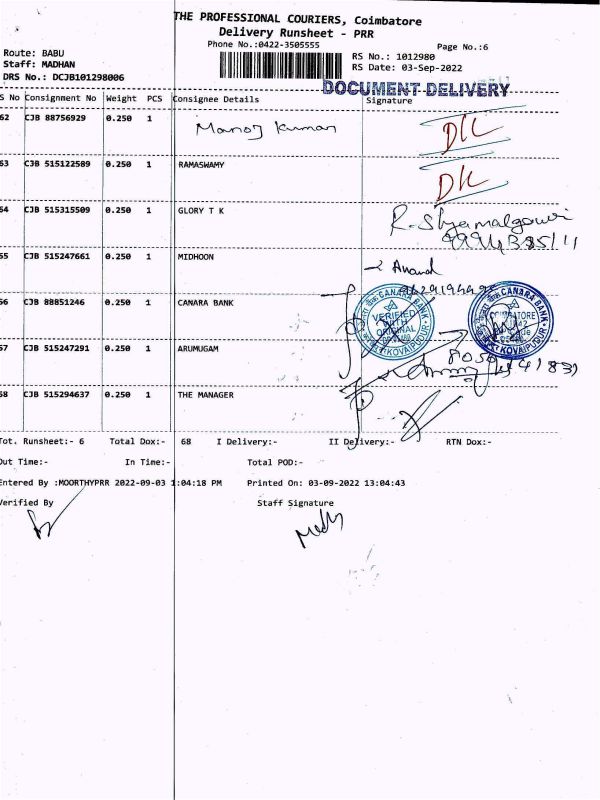 THE PROFESSIONAL COURIERS, Coimbatore
Delivery Runsheet - PRR
Phone No.:0422-3505555
Page No.:6
Route: BABU
Staff: MADHAN
DRS No.: DCJB101298006
RS No.: 1012980
RS Date: 03-Sep-2022
DOCUMENT DELIVERY
S No Consignment No Weight PCS Consignee Details Signature
62 CJB 88756929 0.250 1 Manoj Kumar
63 CJB 515122589 0.250 1 RAMASWAMY
64 CJB 515315509 0.250 1 GLORY T K R. Shyamalgowri
65 CJB 515247661 0.250 1 MIDHOON Anand
66 CJB 88851246 0.250 1 CANARA BANK
CANARA BANK
VERIFIED
WITH
ORIGINAL
KOVAIPUDUR
CANARA BANK
COIMBATORE
KOVAIPUDUR
67 CJB 515247291 0.250 1 ARUMUGAM
68 CJB 515294637 0.250 1 THE MANAGER
Tot. Runsheet:- 6 Total Dox:- 68 I Delivery:- II Delivery:- RTN Dox:-
Out Time:- In Time:- Total POD:-
Entered By :MOORTHYPRR 2022-09-03 1:04:18 PM Printed On: 03-09-2022 13:04:43
Verified By Staff Signature